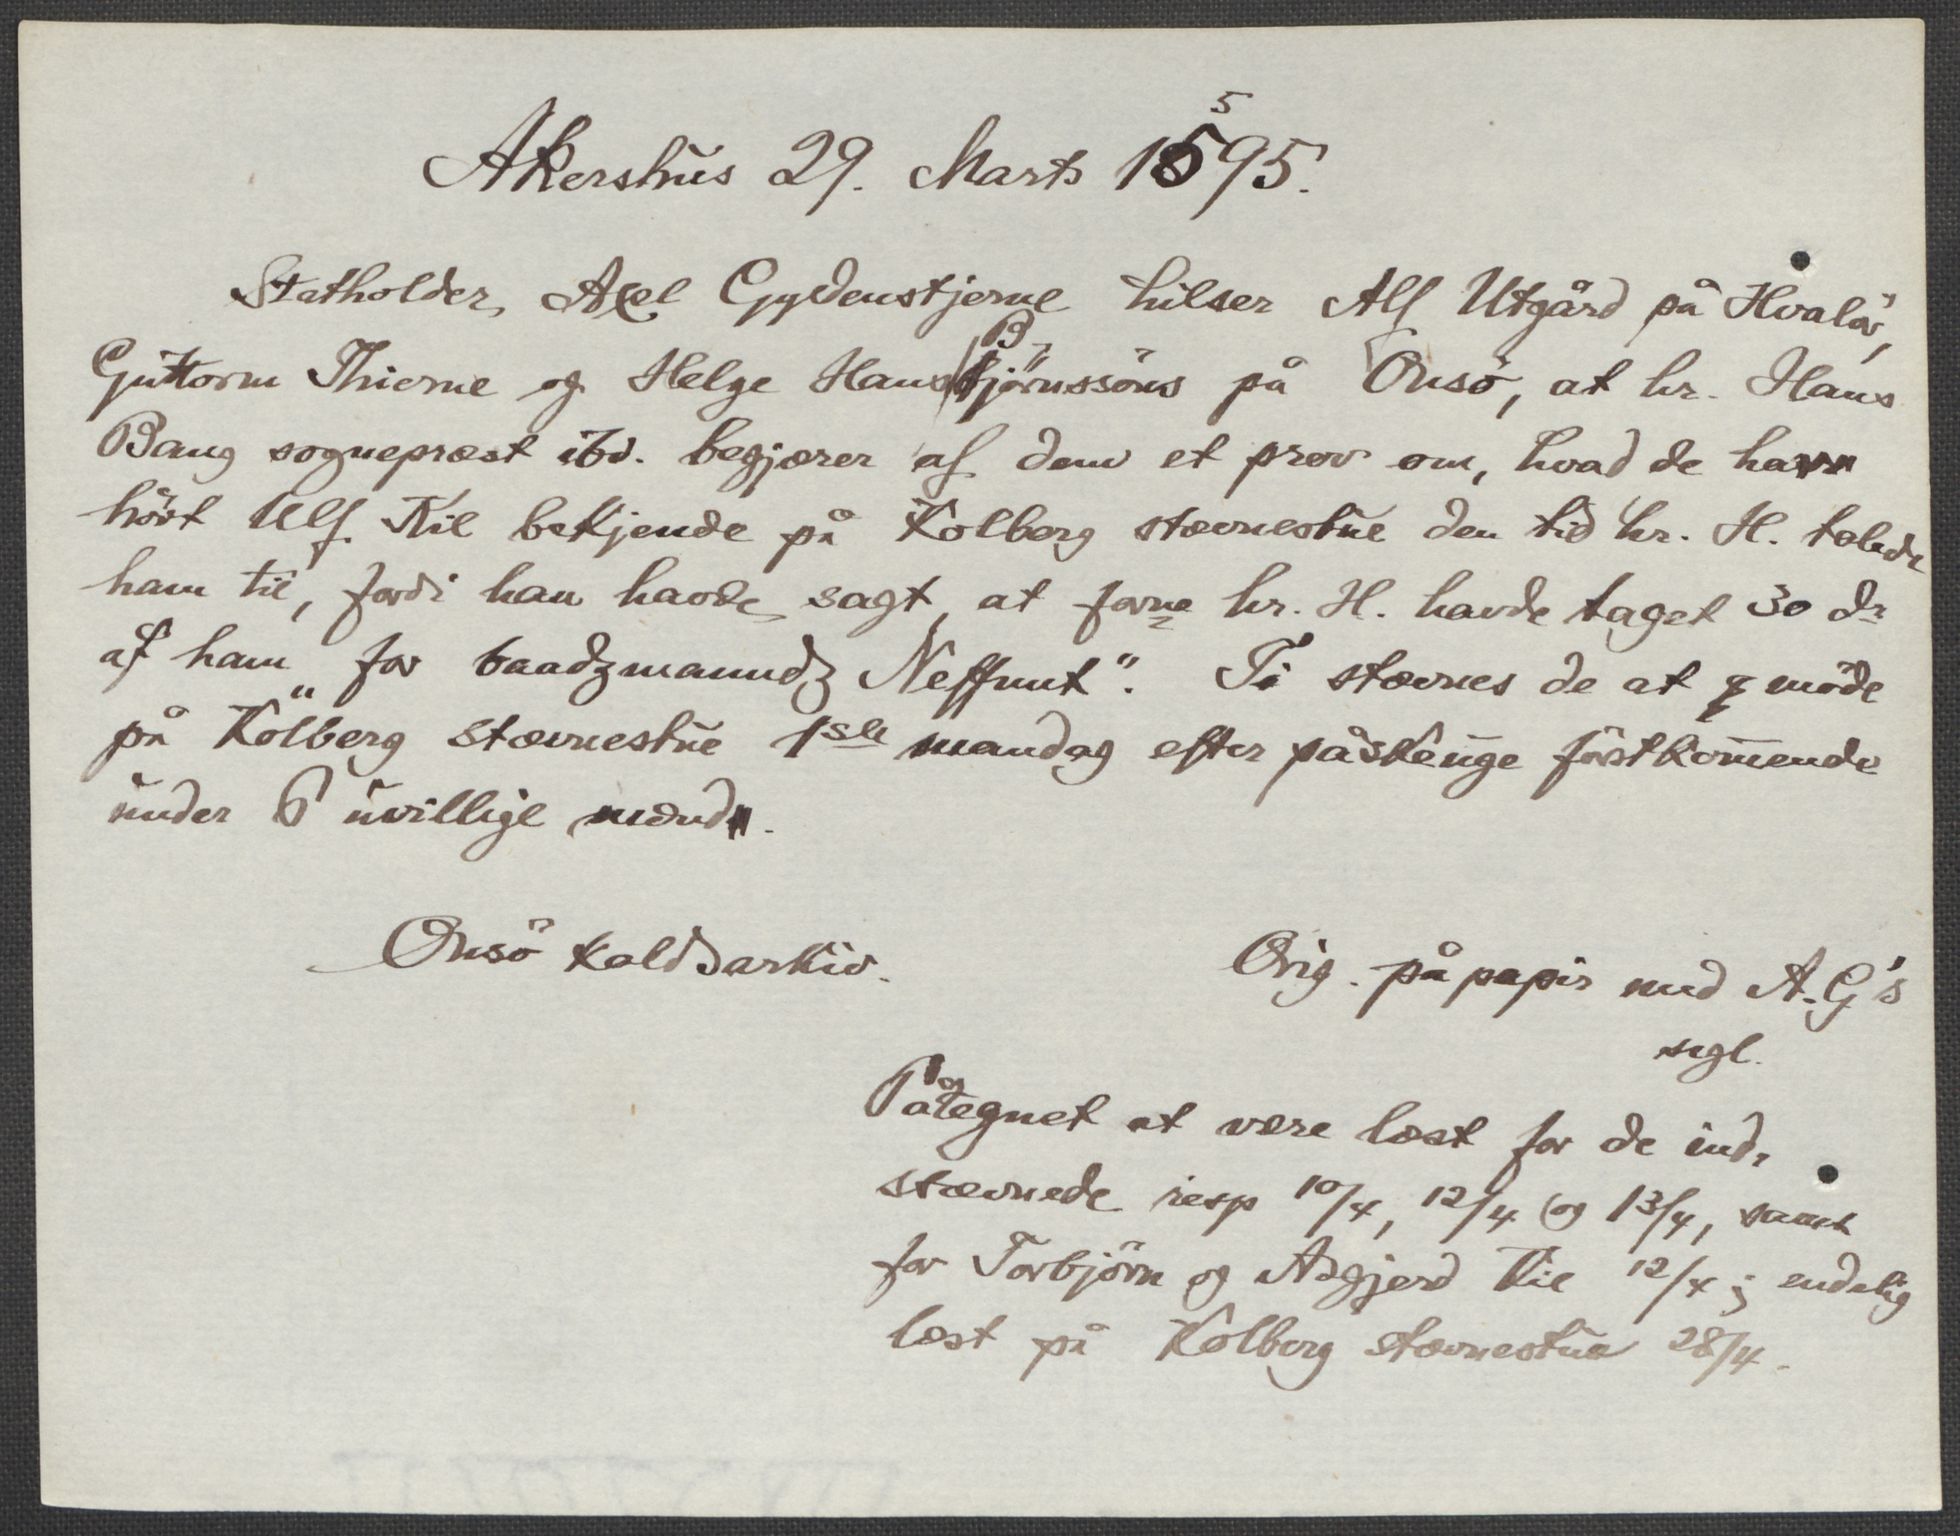 Akershus 29. Marts 1595.
Statholder Axel Gyldenstjerne hilser Alf Utgård på Hvalör,
Guttorm Thierne og Helge Hans Björnssöns på Onsö, at hr. Hans
Bang sogneprest ibd. begjærer af dem et prov om, hvad de have
hört Ulf Kil bekjende på Kolberg stævnestue den tid hr. H. talede
ham til, fordi han havde sagt, at forne hr. H. havde taget 30 dr
af ham „for baadzmanndz Neffnut“. Ti stævnes de at möde
på Kolberg stævnestue 1ste mandag efter påskeuge förstkommende
under 6 uvillige mænd.
Onsö kaldsarkiv.
Orig. på papir med A. G's
segl.
Påtegnet at være læst for de ind-
stævnede resp 10/4, 12/4 og 13/4, samt
for Torbjörn og Asgjerd Kil 12/4; endelig
læst på Kolberg stævnestue 28/4.